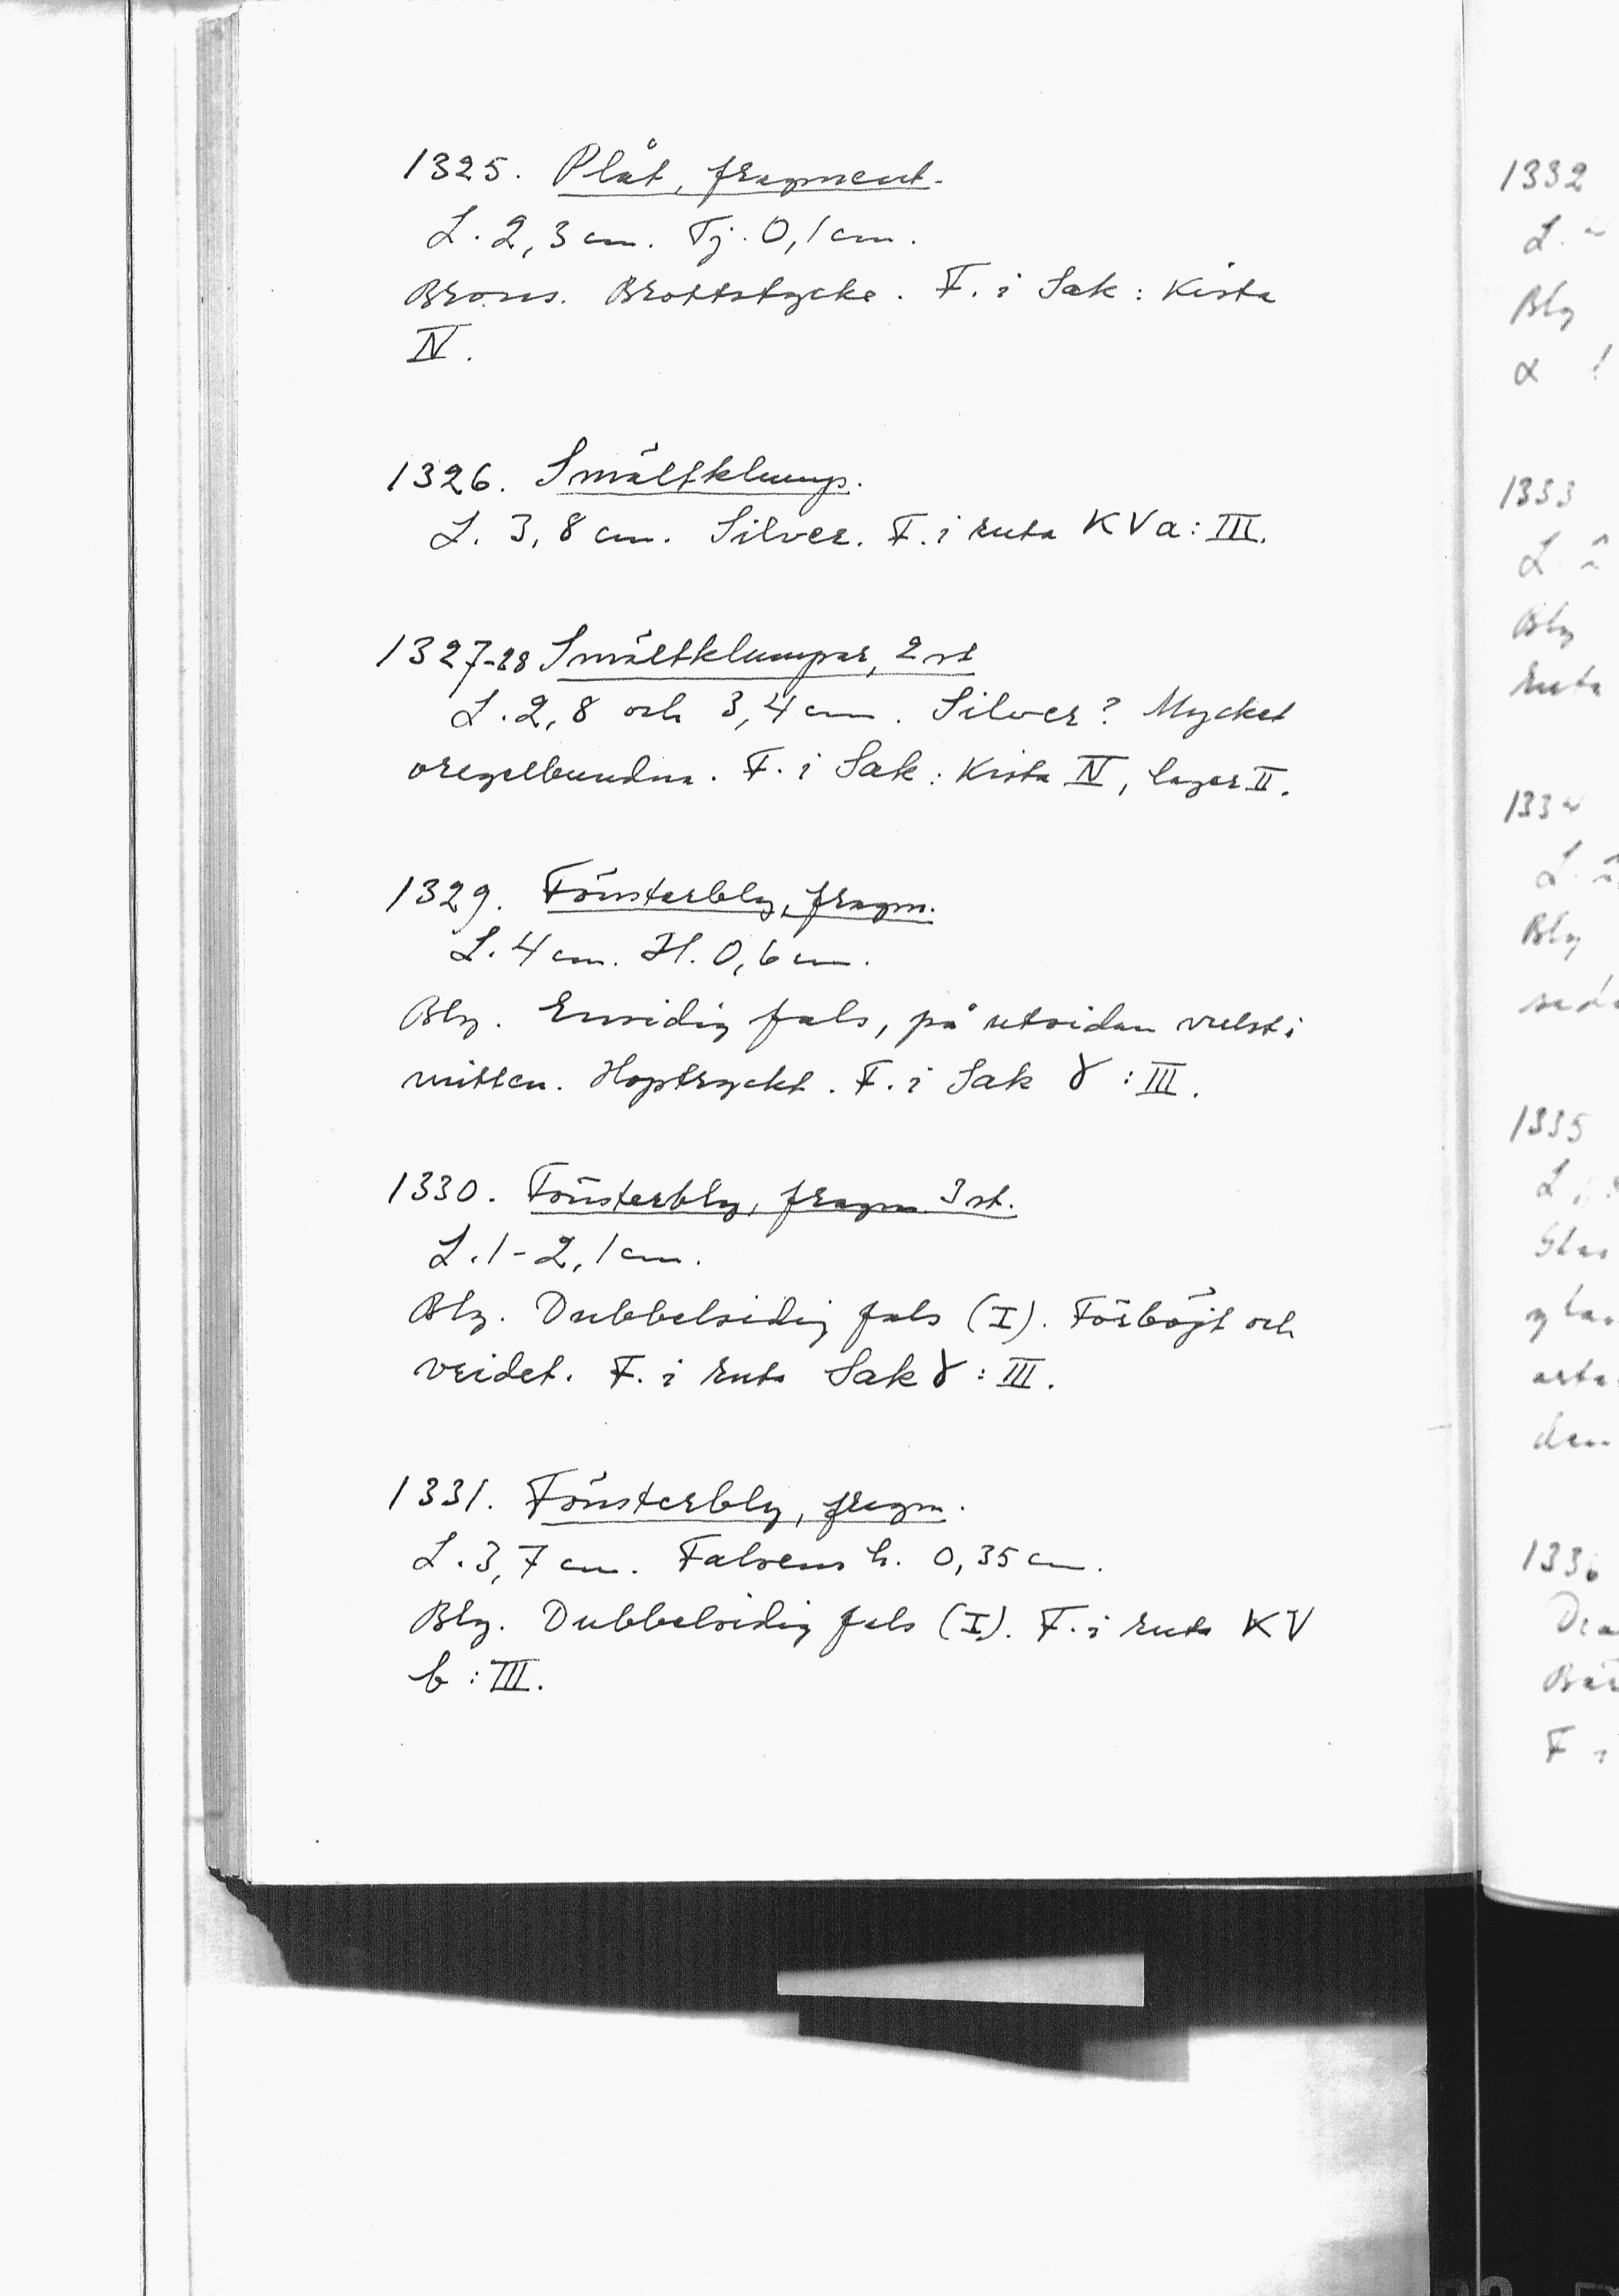 1325. Plåt, fragment.
L. 2,3 cm. Tj. 0,1 cm.
Brons. Brottstycke. F. i Sak: Kista
IV.
1326. Smältklump.
L. 3,8 cm. Silver. F. i ruta KVa: III.
1327-28 Smältklumpar, 2 st
L. 2,8 och 3,4 cm. Silver? Mycket
oregelbundna. F. i Sak: Kista IV, lager II.
1329. Fönsterbly, fragm.
L. 4 cm. H. 0,6 cm.
Bly. Ensidig fals, på utsidan vulst i
mitten. Hoptryckt. F. i Sak γ : III.
1330. Fönsterbly, fragm 3 st.
L. 1-2,1 cm.
Bly. Dubbelsidig fals (I). Förböjt och
vridet. F. i ruta Sak γ : III.
1331. Fönsterbly, fragm.
L. 3,7 cm. Falsens h. 0,35 cm.
Bly. Dubbelsidig fals (I). F. i ruta KV
b : III.
1332
L.
Bly
α
1333
L.
Bly
ruta
L.
Bly
1335
L.
1336
F